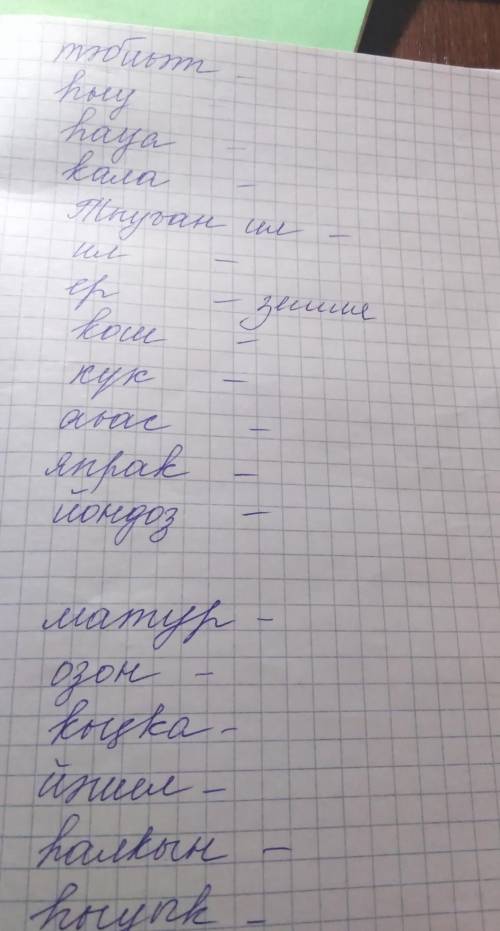 тәбиғәт -
һыу
һауа -
кала -
Тыуған ил -
ил -
ер - земля
кош -
күк -
ағас -
япрак -
йондоз -
матур -
озон -
кыцка -
йәшел -
һалкын -
һыуык -